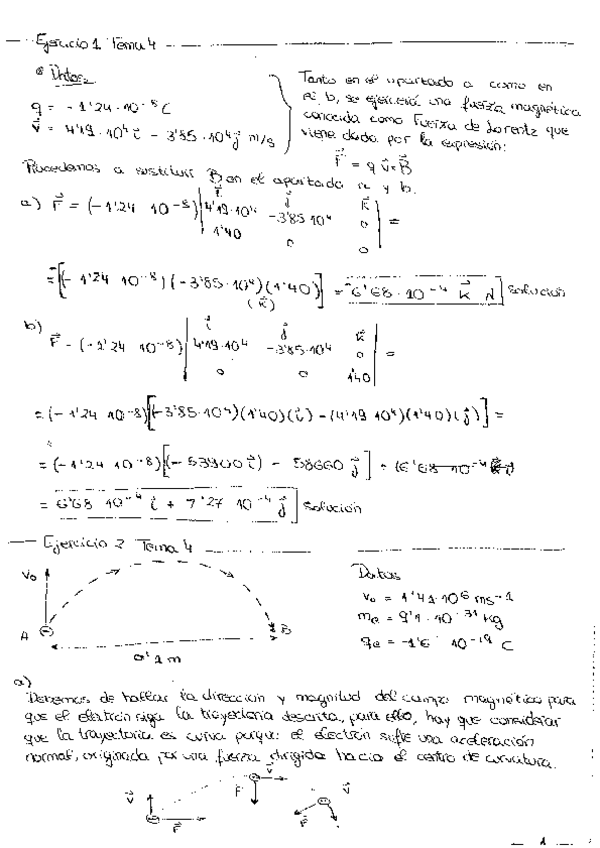 Ejercicio 1 Tema 4
Datos
q = -1'24·10⁻⁸ C
v⃗ = 4'19·10⁴ i⃗ - 3'85·10⁴ j⃗ m/s
Tanto en el apartado a como en
el b, se ejercerá una fuerza magnética
conocida como Fuerza de Lorentz que
viene dada por la expresión:
F⃗ = q v⃗×B⃗
Procedemos a sustituir B en el apartado a y b.
a) F⃗ = (-1'24 10⁻⁸) | i⃗ j⃗ k⃗
4'19·10⁴ -3'85·10⁴ 0
1'40 0 0 | =
= -[(-1'24 10⁻⁸)(-3'85·10⁴)(1'40)] = -6'68·10⁻⁴ k⃗ N solución
(k⃗)
b) F⃗ = (-1'24 10⁻⁸) | i⃗ j⃗ k⃗
4'19·10⁴ -3'85·10⁴ 0
0 0 1'40 | =
= (-1'24 10⁻⁸)[(-3'85·10⁴)(1'40)(i⃗) - (4'19 10⁴)(1'40)(j⃗)] =
= (-1'24 10⁻⁸)[(-53900 i⃗) - 58660 j⃗] = (6'68 10⁻⁴
= 6'68 10⁻⁴ i⃗ + 7'27 10⁻⁴ j⃗ solución
Ejercicio 2 Tema 4
V₀
A
B
0'1 m
Datos
v₀ = 1'41·10⁶ ms⁻¹
mₑ = 9'1·10⁻³¹ kg
qₑ = -1'6 10⁻¹⁹ C
a)
Debemos de hallar la dirección y magnitud del campo magnético para
que el electrón siga la trayectoria descrita, para ello, hay que considerar
que la trayectoria es curva porque el electrón sufre una aceleración
normal, originada por una fuerza dirigida hacia el centro de curvatura.
v⃗
F⃗
v⃗
F
v⃗
F⃗
1